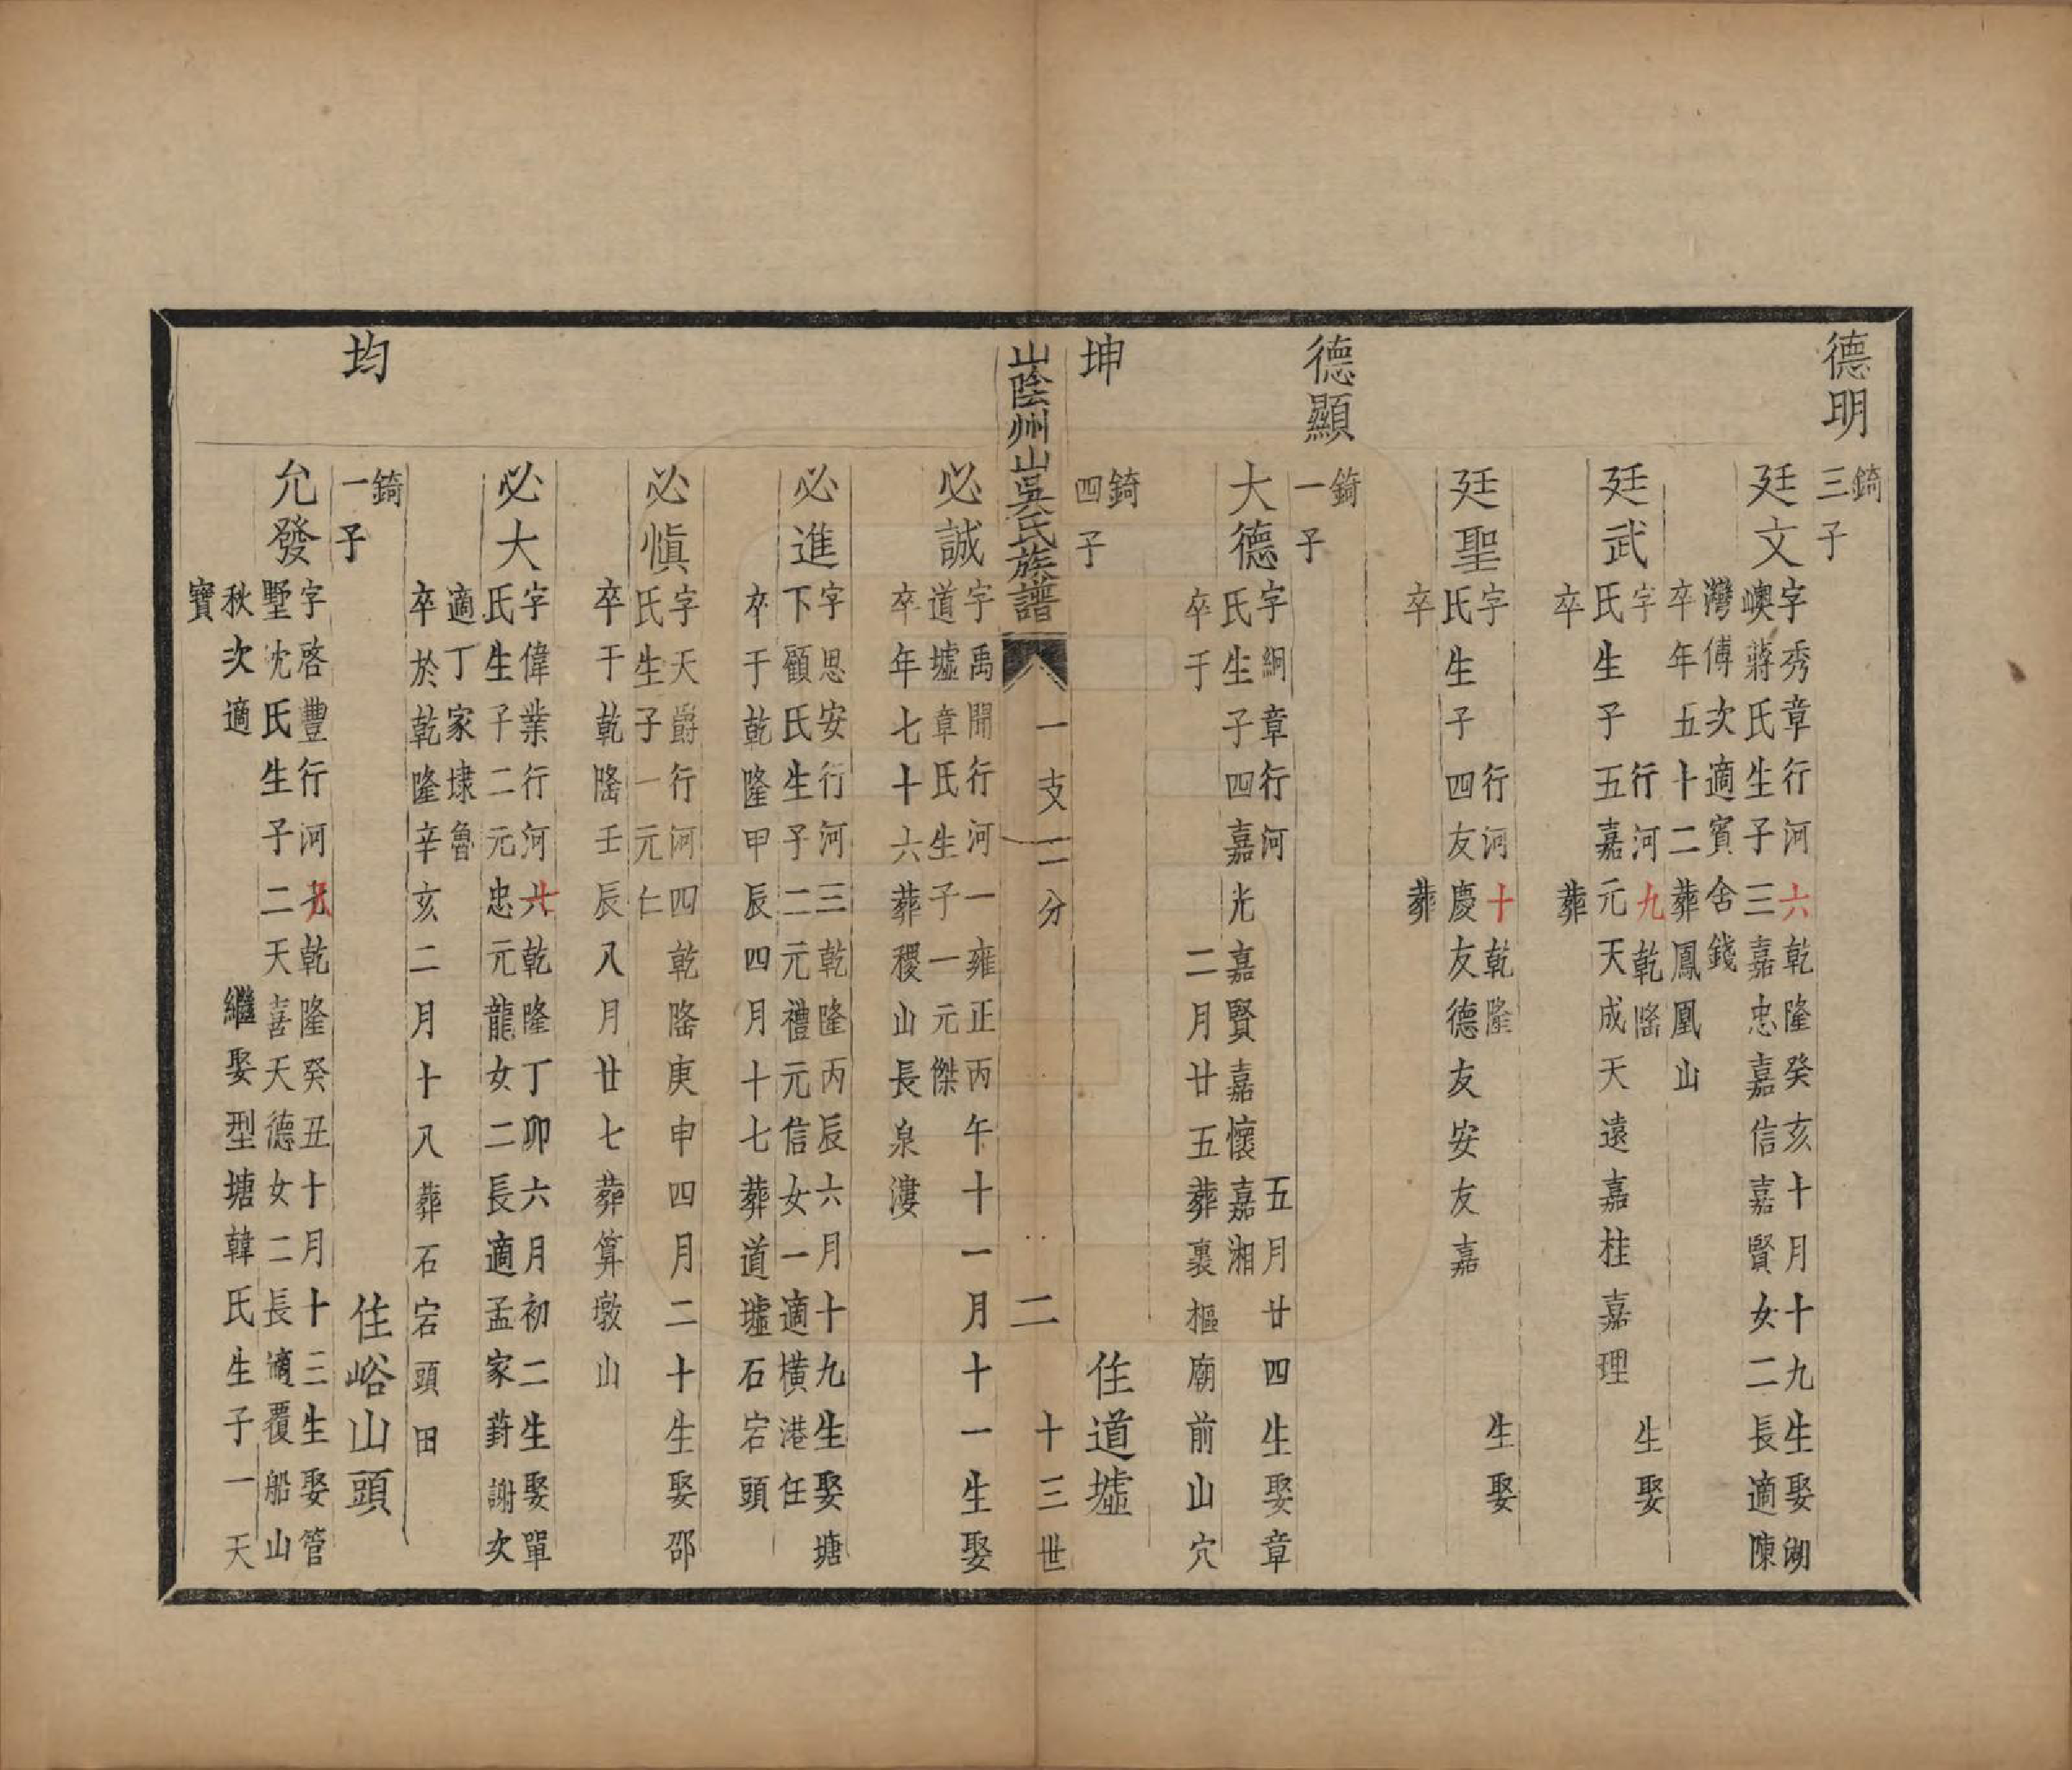 德明
錡
三子
廷文
字秀章行河六乾隆癸亥十月十九生娶湖
嶴蔣氏生子三嘉忠嘉信嘉賢女二長適陳
灣傅次適賓舍錢
卒年五十二葬鳳凰山
廷武
字行河九乾隆生娶
氏生子五嘉元天成天遠嘉桂嘉理
卒葬
廷聖
字行河十乾隆生娶
氏生子四友慶友德友安友嘉
卒葬
德顯
錡
一子
大德
字絅章行河五月廿四生娶章
氏生子四嘉光嘉賢嘉懷嘉湘
卒于二月廿五葬裏樞廟前山穴
坤
錡
四子
住道墟
山陰州山吳氏族譜
一支二分
二
十三世
必誠
字禹開行河一雍正丙午十一月十一生娶
道墟章氏生子一元傑
卒年七十六葬稷山長泉漊
必進
字思安行河三乾隆丙辰六月十九生娶塘
下顧氏生子二元禮元信女一適橫港任
卒于乾隆甲辰四月十七葬道墟石宕頭
必慎
字天爵行河四乾隆庚申四月二十生娶邵
氏生子一元仁
卒于乾隆壬辰八月廿七葬算墩山
必大
字偉業行河六乾隆丁卯六月初二生娶單
氏生子二元忠元龍女二長適孟家葑謝次
適丁家埭魯
卒於乾隆辛亥二月十八葬石宕頭田
均
錡
一子
住峪山頭
允發
字啓豐行河八乾隆癸丑十月十三生娶管
墅沈氏生子二天喜天德女二長適覆船山
秋次適繼娶型塘韓氏生子一天
寶